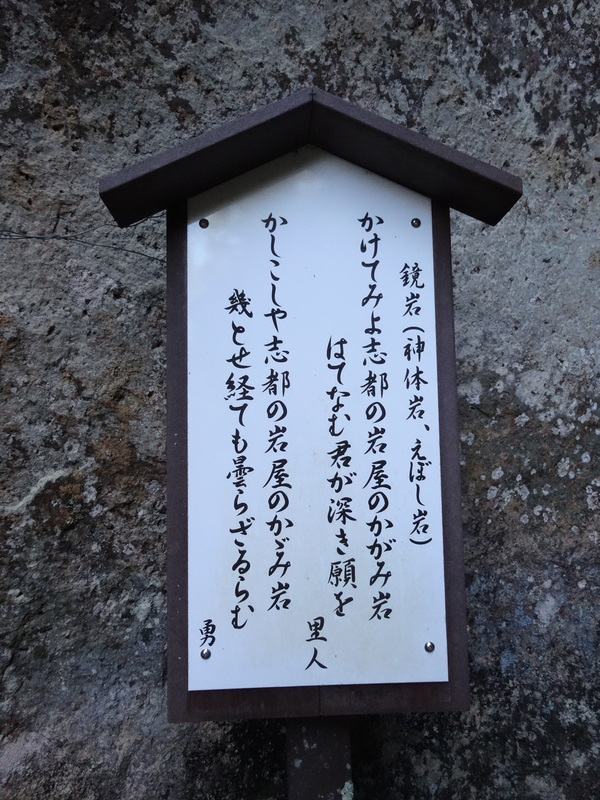 鏡岩(神体岩、えぼし岩)
かけてみよ志都の岩屋のかがみ岩
はてなむ君が深き願を
里人
かしこしや志都の岩屋のかゞみ岩
幾とせ経ても曇らざるらむ
勇